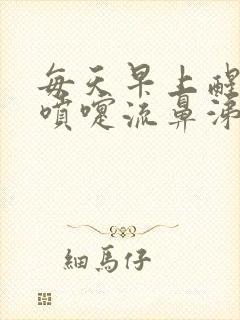 每天早上醒
噴嚏流鼻涕
細馬仔